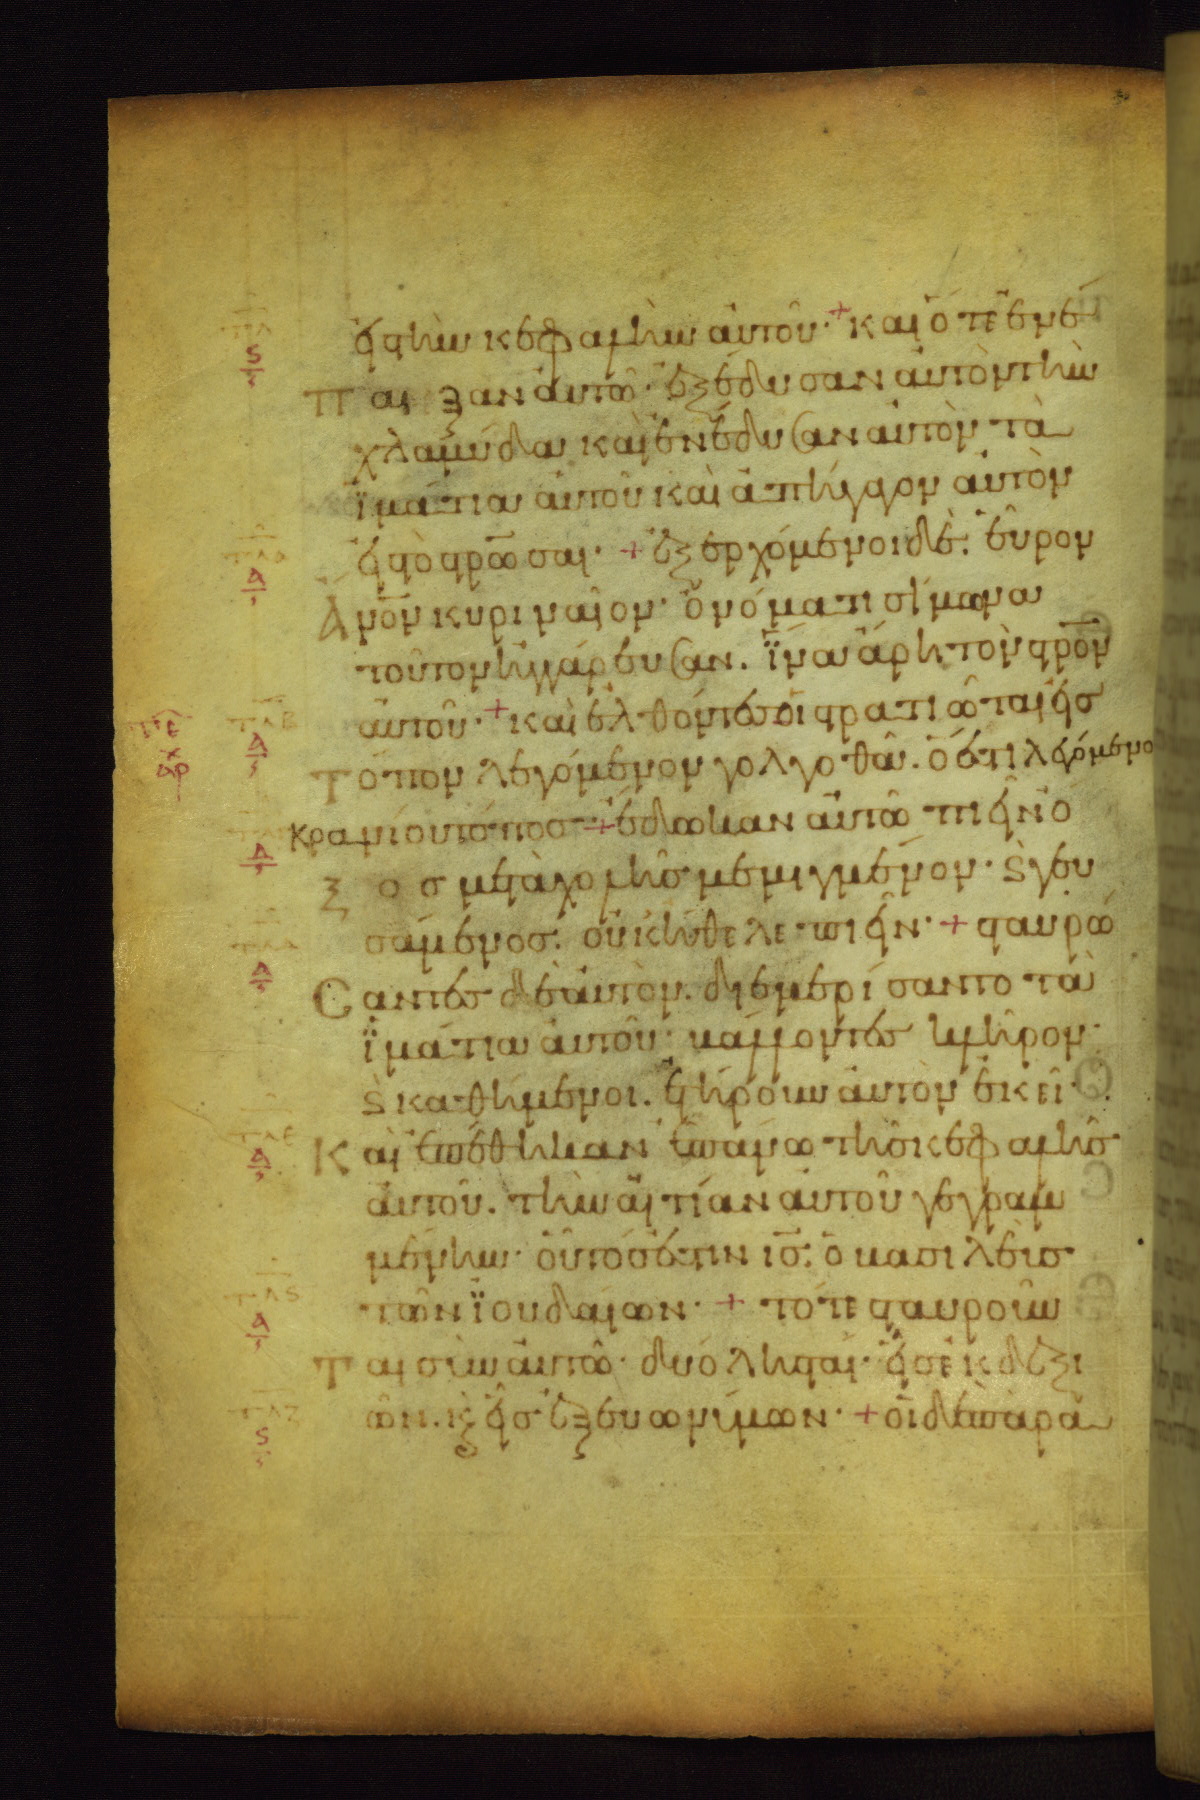 εἰς τὴν κεφαλὴν αὐτοῦ· + καὶ ὅτε ἐνέ
παιξαν αὐτῶ· ἐξέδυσαν αὐτὸν τὴν
χλαμύδα καὶ ἐνέδυσαν αὐτὸν τὰ
ἱμάτια αὐτοῦ καὶ ἀπήγαγον αὐτὸν
εἰς τὸ στρῶσαι· + ἐξερχόμενοι δὲ. εὗρον
ἄνον κυριναῖον· ὀνόματι σίμωνα
τοῦτον ἠγγάρευσαν. ἵνα ἄρη τὸν στρον
αὐτοῦ· + καὶ ἐλθόντες οἱ στρατιῶται εἰς
τόπον λεγόμενον γολγοθᾶ. ὅ ἐστι λεγόμενο
κρανίου τόπος + ἔδωκαν αὐτῶ πιεῖν ὄ
ξος μετὰ χολῆς μεμιγμένον· ϗ γευ
σάμενος. οὐκ ἤθελε πιεῖν· + σταυρώ
σαντες δὲ αὐτὸν. διεμερίσαντο τὰ
ἱμάτια αὐτοῦ· βάλλοντες κλῆρον·
ϗ καθήμενοι. ἐτήρουν αὐτὸν ἐκεῖ·
καὶ ἐπέθηκαν ἐπάνω τῆς κεφαλῆς
αὐτοῦ. τὴν αἰτίαν αὐτοῦ γεγραμ
μένην· οὗτός ἐστιν ις. ὁ βασιλεὺς
τῶν ἰουδαίων· + τότε σταυροῦν
ται σὺν αὐτῶ· δύο λησταί· εἷς ἐκ δεξι
ῶν. ϗ εἷς ἐξ εὐωνύμων· + οἱ δὲ παρα